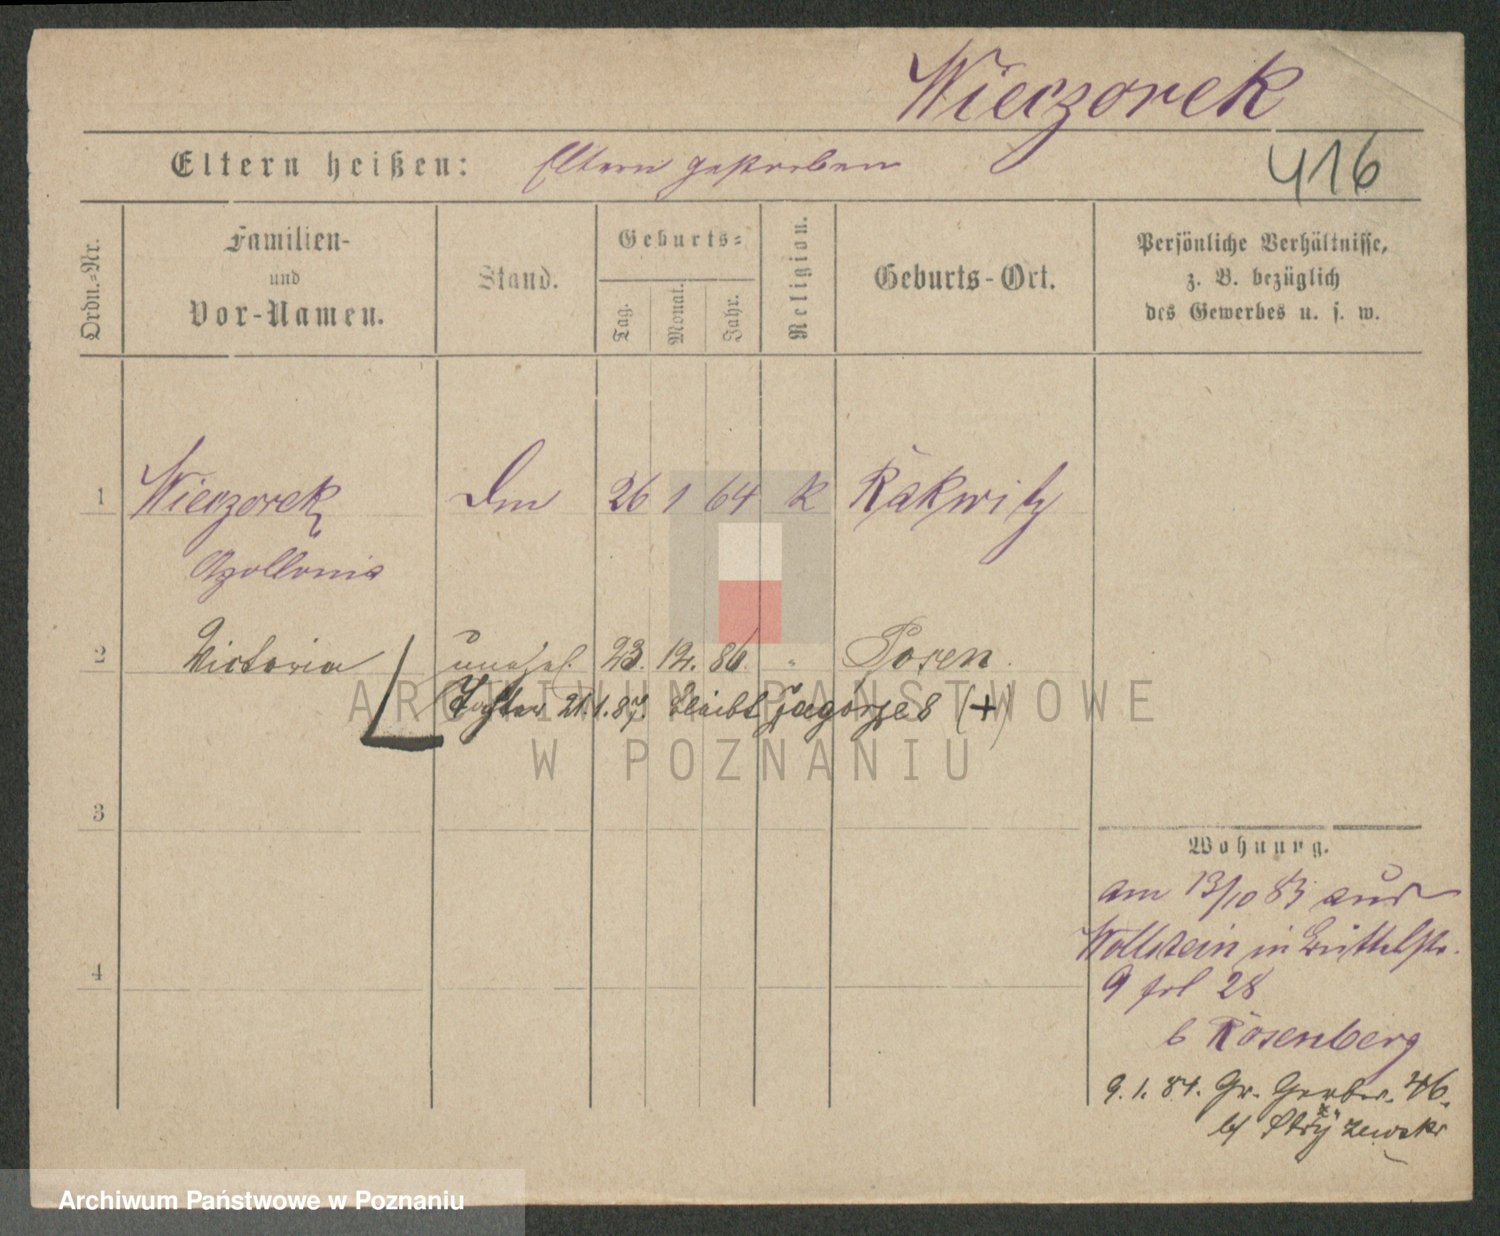 Wieczorek
Eltern heißen: Eltern gestorben
416
Ordn.-Nr.
Familien-
und
Vor-Namen.
Stand.
Geburts-
Tag.
Monat.
Jahr.
Religion.
Geburts-Ort.
Persönliche Verhältnisse,
z. B. bezüglich
des Gewerbes u. s. w.
1 Wieczorek 26 1 64 k Rakwitz
Apollonia
2 Victoria unehel. 23. 12. 86. " Posen.
Tochter 21.1.87. bleibt
3
4
Wohnung.
am 13/10 83 aus
Wollstein in Büttelstr.
9 frl 28
b Rosenberg
9.1.84. Gr. Gerber. 46.
b/
ARCHIWUM PAŃSTWOWE
W POZNANIU
Archiwum Państwowe w Poznaniu